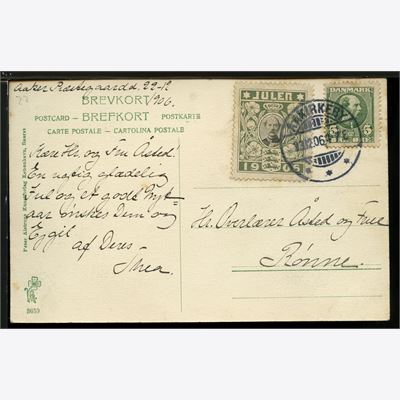 Aaker Præstegaard d. 22-12
1906.
BREVKORT
POSTCARD — BREFKORT — POSTKARTE
CARTE POSTALE — CARTOLINA POSTALE
Kære Hr. og Fru Åsted!
En rigtig glædelig
Jul og et godt Nyt-
aar ønskes Dem og
Ejgil
af Deres
JULEN
1906
AAKIRKEBY
DANMARK
5 5
Hr. Overlærer Åsted og Frue
Rønne.
Peter Alstrups Kunstforlag København,
8659